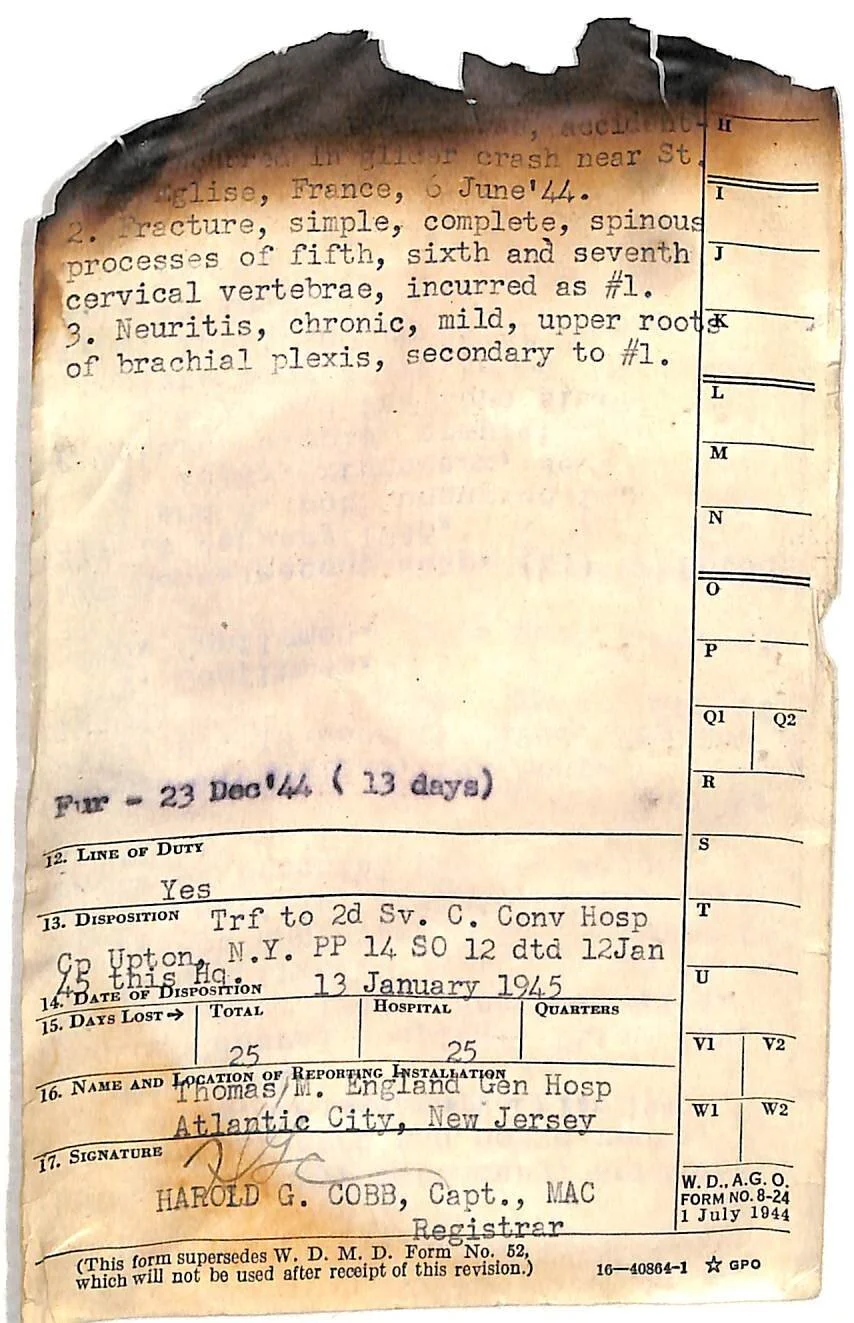 accident-
in glider crash near St.
Eglise, France, 6 June'44.
2. Fracture, simple, complete, spinous
processes of fifth, sixth and seventh
cervical vertebrae, incurred as #1.
3. Neuritis, chronic, mild, upper roots
of brachial plexis, secondary to #1.
Fur - 23 Dec'44 ( 13 days)
12. LINE OF DUTY
Yes
13. DISPOSITION Trf to 2d Sv. C. Conv Hosp
Cp Upton, N.Y. PP 14 SO 12 dtd 12Jan
45 this Hq.
14. DATE OF DISPOSITION 13 January 1945
15. DAYS LOST→ TOTAL HOSPITAL QUARTERS
25 25
16. NAME AND LOCATION OF REPORTING INSTALLATION
Thomas M. England Gen Hosp
Atlantic City, New Jersey
17. SIGNATURE
HAROLD G. COBB, Capt., MAC
Registrar
(This form supersedes W. D. M. D. Form No. 52,
which will not be used after receipt of this revision.)
16—40864-1 ☆ GPO
H
I
J
K
L
M
N
O
P
Q1 Q2
R
S
T
U
V1 V2
W1 W2
W. D., A. G. O.
FORM NO. 8-24
1 July 1944